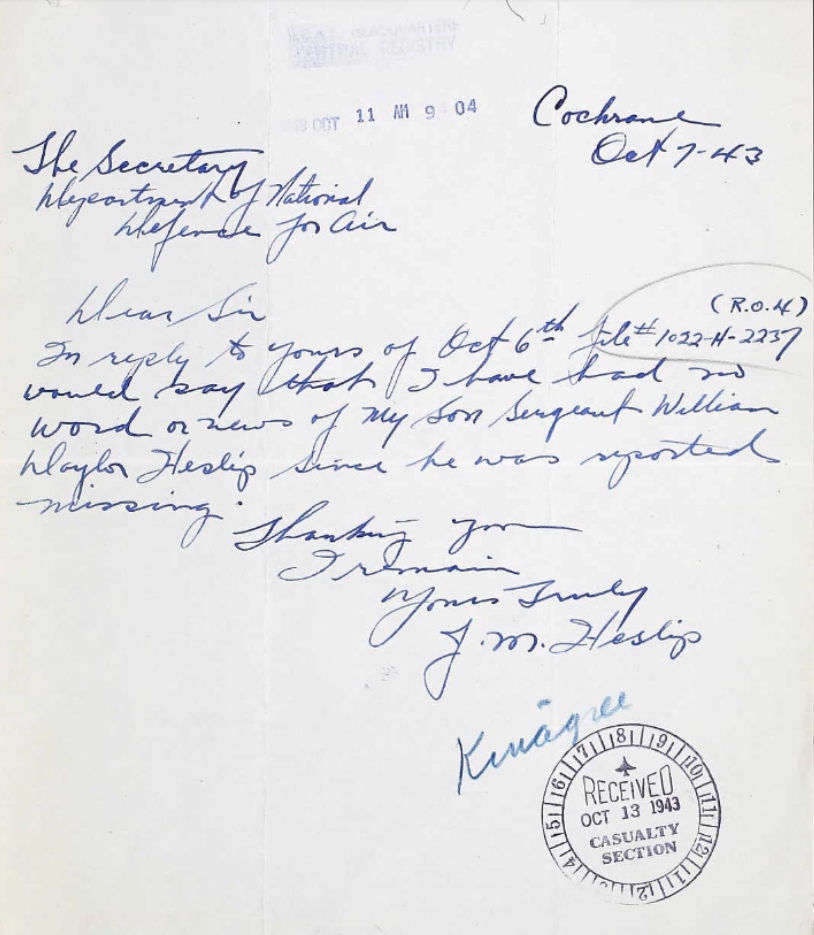 R.C.A.F. HEADQUARTERS
CENTRAL REGISTRY
1943 OCT 11 AM 9 04
Cochrane
Oct 7-43
The Secretary
Department of National
Defence for Air
Dear Sir
(R.O.4)
In reply to yours of Oct 6th file # 1022-H-2237
would say that I have had no
word or news of My Son Sergeant William
Naylor Heslip since he was reported
missing.
Thanking you
I remain
Yours Truly
J. M. Heslip
7 8 9 10 11 12 1 2 14 15 16
RECEIVED
OCT 13 1943
CASUALTY
SECTION